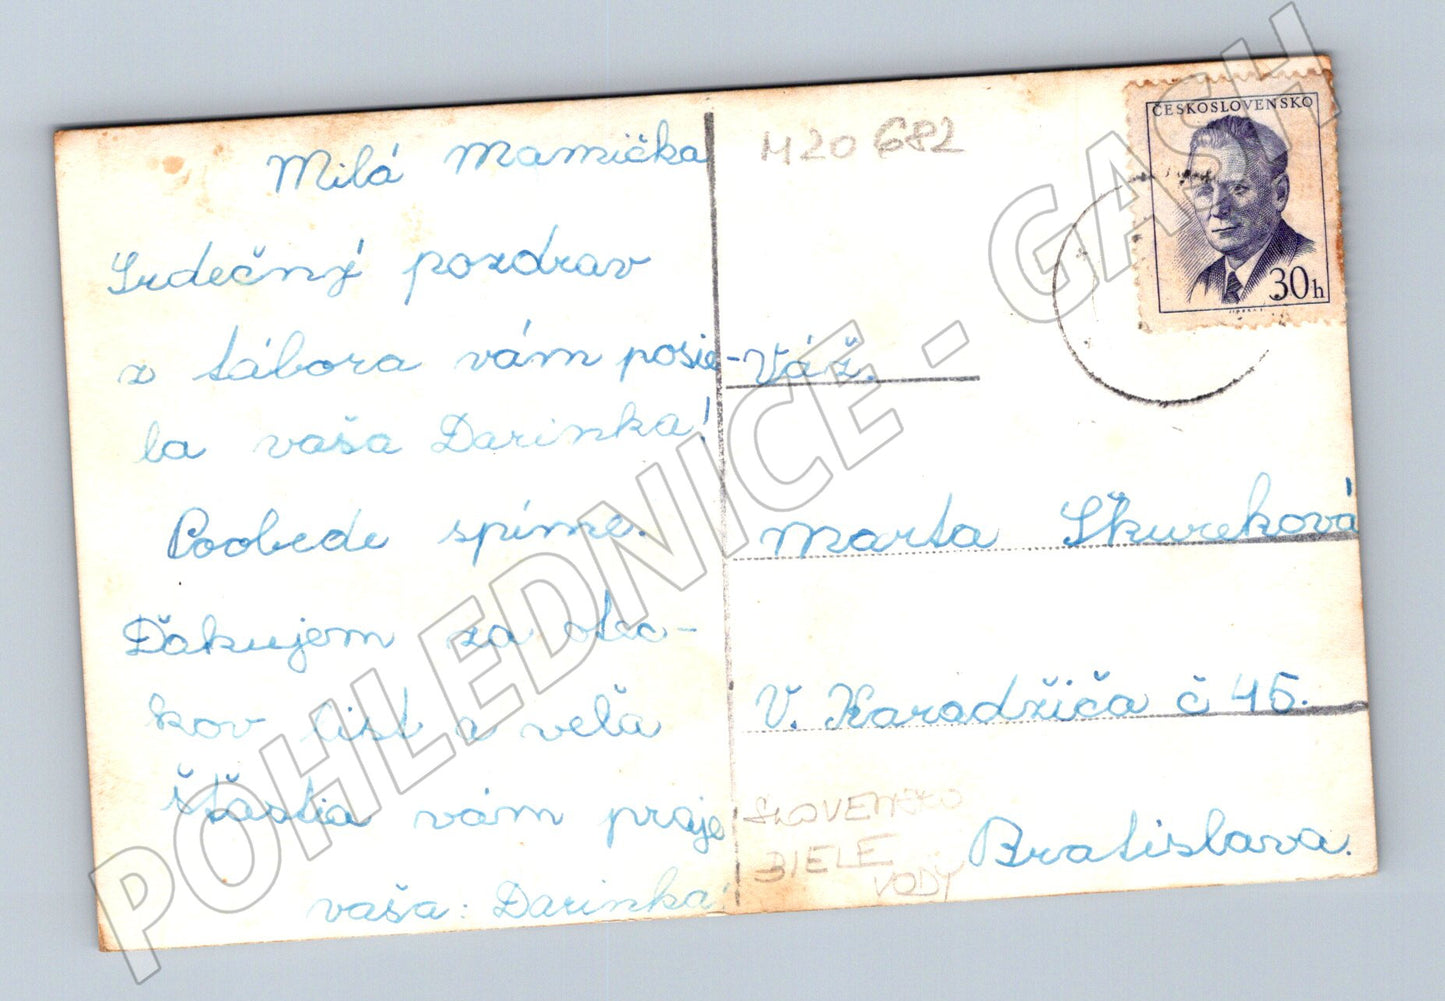 Milá Mamička
Srdečný pozdrav
z tábora vám posie-
la vaša Darinka!
Poobede spíme.
Ďakujem za otec-
kov list a veľa
šťastia vám praje
vaša: Darinka
M20 682
ČESKOSLOVENSKO
30h
Váž.
Marta Škureková
V. Karadžiča č 45.
Bratislava.
SLOVENSKO
BIELE
VODY
POHLEDNICE - GASH